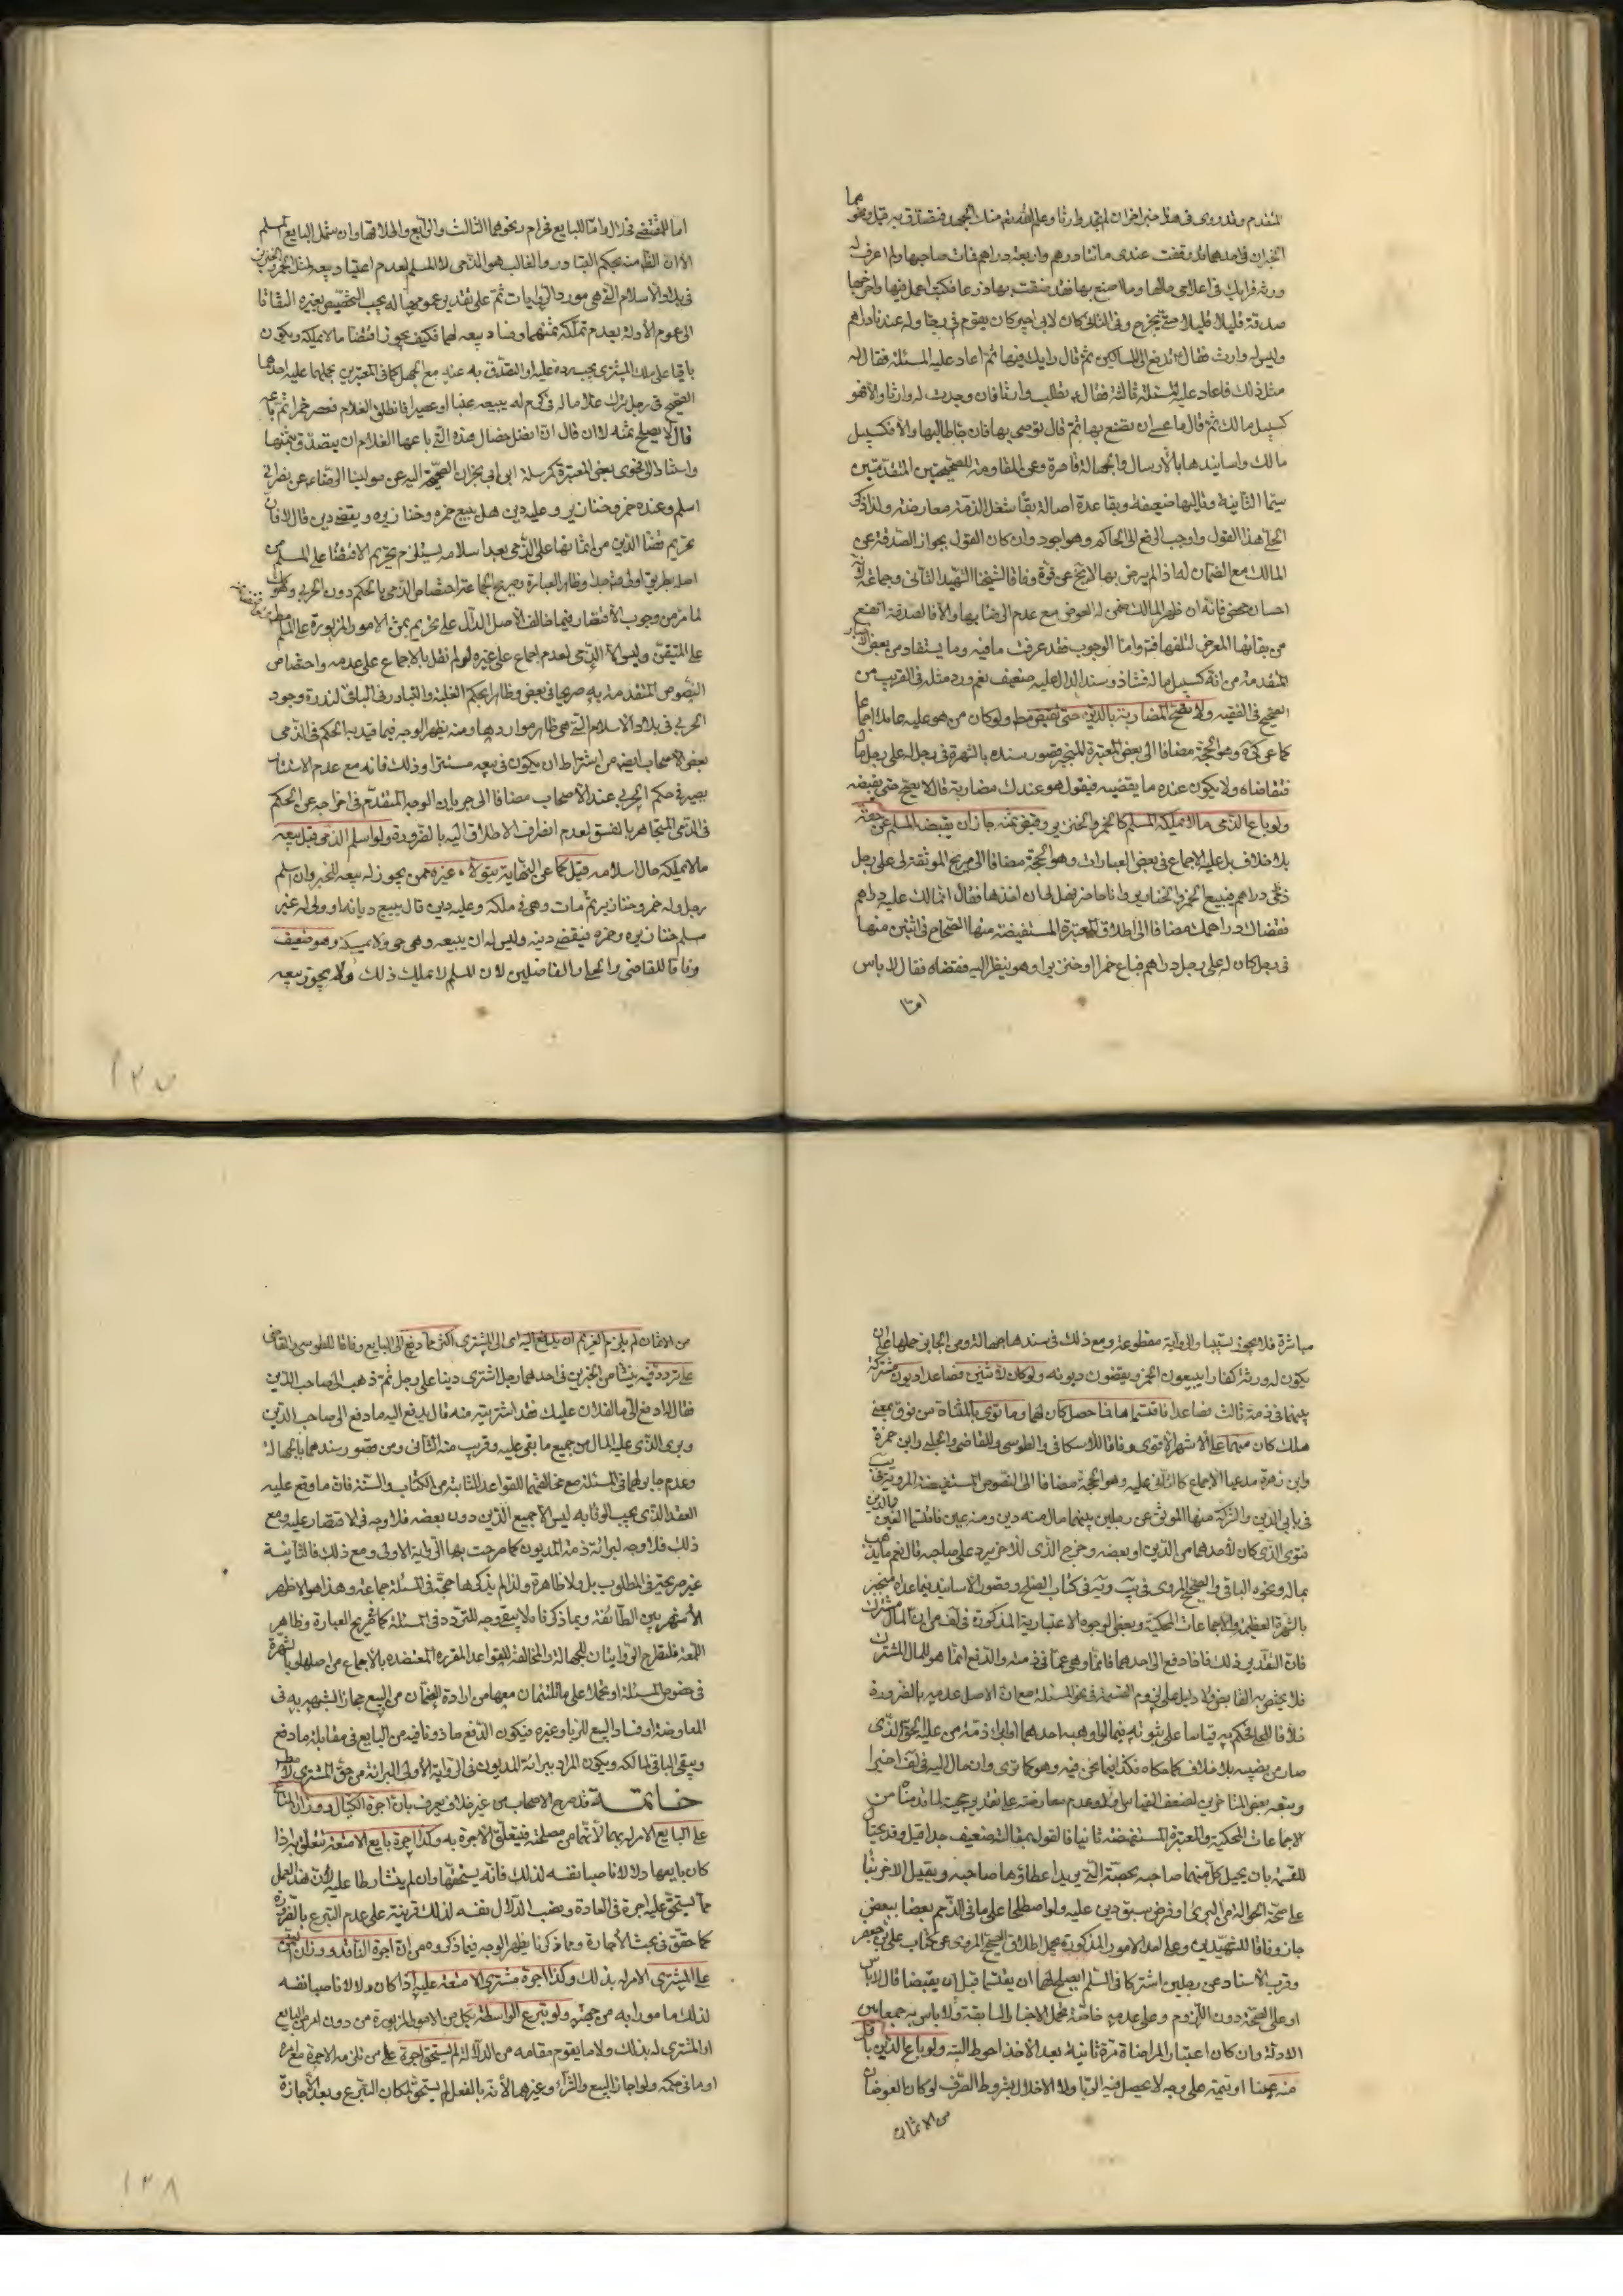 المتقدم وقد روى فى هذا خبر اخر ان لم تجد وارثا وعلم الله تعم منك الجهد فتصدق به قيل ونحوهما
الخبران فى احدهما قد وقعت عندى مائتا درهم واربعة دراهم فمات صاحبها ولم اعرف له
ورثة فرايك فى اعلامى حالها وما اصنع بها فقد ضقت بها ذرعا فكتب اعمل فيها واخرجها
صدقة قليلا قليلا حتى تخرج وفى الثانى كان لابى اجير كان يقوم فى رحاه وله عندنا دراهم
وليس له وارث فقال تدفع الى المساكين ثم قال رايك فيها ثم اعاد عليه المسئلة فقال له
مثل ذلك فاعاد عليه المسئلة ثالثة فقال تطلب وارثا فان وجدت له وارثا والا فهو
كسبيل مالك ثم قال ما عسى ان تصنع بها ثم قال توصى بها فان جاء طالبها والا فكسبيل
مالك واسانيدها بالارسال والجهالة قاصرة وعن المقاومة للصحيحين المتقدمين
سيما الثانية وتاليها ضعيفة وبقاعدة اصالة بقاء شغل الذمة معارضة ولذا ذكر
الحلى هذا القول واوجب الدفع الى الحاكم وهو اجود وان كان القول بجواز الصدقة عن
المالك مع الضمان له اذا لم يرض بها لا يخ عن قوة وفاقا لشيخنا الشهيد الثانى وجماعة لانه
احسان محض فانه ان ظهر المالك ضمن له العوض مع عدم الرضا بها والا فالصدقة انفع
من بقائها المعرض لتلفها فتة واما الوجوب فقد عرفت ما فيه وما يستفاد من بعض الاخبار
المتقدمة من انه كسبيل ماله فشاذ وسند الدال عليه ضعيف نعم ورد مثله فى القريب من
الصحيح فى الفقيه ولا تصح المضاربة بالدين حتى تقبض مط ولو كان من هو عليه عاملا اجماعا
كما عن كرة وهو الحجة مضافا الى بعض المعتبرة المنجبر قصور سنده بالشهرة فى رجل له على رجل مال
فتقاضاه ولا يكون عنده ما يقضيه فيقول هو عندك مضاربة قال لا يصح حتى يقبضه
ولو باع الذمى ما لا يملكه المسلم كالخمر والخنزير وقبض ثمنه جاز ان يقبضه المسلم عن حقه
بلا خلاف بل عليه الاجماع فى بعض العبارات وهو الحجة مضافا الى صريح الموثقة لى على رجل
ذمى دراهم فيبيع الخمر والخنازير وانا حاضر يحل لى ان اخذها فقال انما لك عليه دراهم
فقضاك دراهمك مضافا الى اطلاق المعتبرة المستفيضة منها الصحاح فى اثنين منها
فى رجل كان له على رجل دراهم فباع خمرا او خنزيرا وهو ينظر اليه فقضاه فقال لا باس
اما
اما للمقتضى فحلال واما للبايع فحرام ونحوهما الثالث والرابع واطلاقها وان شمل البايع المسلم
الا ان الظ منه بحكم التبادر والغالب هو الذمى لا المسلم لعدم اعتياد بيعه لمثل الخمر والخنزير
فى بلاد الاسلام التى هى مورد الروايات ثم على تقدير عمومها له يجب التخصيص بغيره التفاتا
الى عموم الادلة بعدم تملكه ثمنهما وفساد بيعه لهما فكيف يجوز اقتضاء ما لا يملكه ويكون
باقيا على ملك المشترى يجب رده عليه او التصدق به عنه مع الجهل كما فى المعتبرين بحملهما عليه احدهما
الصحيح فى رجل ترك غلاما له فى كرم له يبيعه عنبا او عصيرا فانطلق الغلام فعصر خمرا ثم باعه
قال لا يصلح ثمنه الى ان قال ان افضل خصال هذه التى باعها الغلام ان يتصدق بثمنها
واستنادا الى فحوى بعض المعتبرة كمرسلة ابن ابى نجران الصحيحة اليه عن مولينا الرضاء عن نصرانى
اسلم وعنده خمر وخنازير وعليه دين هل يبيع خمره وخنازيره ويقضى دينه قال لا فان
تحريم قضاء الدين من اثمانها على الذمى بعد اسلامه يستلزم تحريم الاقتضاء على المسلم من
اصله بطريق اولى وظاهر العبارة وصريح جماعة اختصاص الذمى بالحكم دون الحربى وهو كك
لما مر من وجوب الاقتصار فيما خالف الاصل الدال على تحريم ثمن الامور المزبورة على المسلم مط
على المتيقن وليس الا الذمى لعدم اجماع على غيره لو لم نقل بالاجماع على عدمه واختصاص
النصوص المتقدمة به صريحا فى بعض وظاهرا بحكم الغلبة والتبادر فى الباقى لندرة وجود
الحربى فى بلاد الاسلام التى هى ظاهر مواردها ومنه يظهر الوجه فيما قيد به الحكم فى الذمى
بعض الاصحاب ايضا من اشتراط ان يكون فى بيعه مستترا وذلك فانه مع عدم الاستتار
يصير فى حكم الحربى عند الاصحاب مضافا الى جريان الوجه المتقدم فى اخراجه عن الحكم
فى الذمى المتجاهر بالفسق لعدم انصراف الاطلاق اليه بالضرورة ولو اسلم الذمى قبل بيعه
ما لا يملكه حال اسلامه قيل كما عن النهاية يتولاه غيره ممن يجوز له بيعه للخبر وان اسلم
رجل وله خمر وخنازير ثم مات وهى فى ملكه وعليه دين قال يبيع ديانه او ولى له غير
مسلم خنازيره وخمره فيقضى دينه وليس له ان يبيعه وهو حى ولا يمسكه وهو ضعيف
وفاقا للقاضى والحلى والفاضلين لان المسلم لا يملك ذلك ولا يجوز بيعه
١٢٧
مباشرة فلا يجوز تسبيبا والرواية مقطوعة ومع ذلك فى سندها جهالة ومن الجايز حملها على ان
يكون له ورثة كفارا يبيعون الخمر ويقضون ديونه ولو كان لاثنين فصاعدا ديون مشتركة
بينهما فى ذمة ثالث فصاعدا فاقتسماها فما حصل كان لهما وما توى بالمثناة من فوق بمعنى
هلك كان منهما على الاشهر الاقوى وفاقا للاسكافى والطوسى والقاضى والحلبى وابن حمزة
وابن زهرة مدعيا الاجماع كالثانى عليه وهو الحجة مضافا الى النصوص المستفيضة المروية فى يب
فى بابى الدين والشركة منها الموثق عن رجلين بينهما مال منه دين ومنه عين فاقتسما العين والدين
فتوى الذى كان لاحدهما من الدين او بعضه وخرج الذى للاخر يرد على صاحبه قال نعم ما يذهب
بماله ونحوه الباقى والصحيح المروى فى يب وفيه فى كتاب الصلح وقصور الاسانيد فيما عداه منجبر
بالشهرة العظيمة والاجماعات المحكية وبعض الوجوه الاعتبارية المذكورة فى لف من ان المال مشترك
فان التقدير ذلك فاذا دفع الى احدهما فانما هى عما فى ذمته والدفع انما هو للمال المشترك
فلا يختص به القابض ولا دليل على لزوم القسمة فى نحو المسئلة مع ان الاصل عدمه بالضرورة
خلافا للحلى فحكم به قياسا على ثبوته فيما لو وهبه احدهما او ابرء ذمته من عليه الحق الذى
صار من نصيبه بلا خلاف كما حكاه فكذا فيما نحن فيه وهو كما ترى وان مال اليه فى لف اخيرا
وتبعه بعض المتاخرين لضعف القياس اولا وعدم معارضته على تقدير حجيته لما قدمناه من
الاجماعات المحكية والمعتبرة المستفيضة ثانيا فالقول بمقالته ضعيف جدا قيل وقد يحتال
للقسمة بان يحيل كل منهما صاحبه بحصته التى يريد اعطاؤها صاحبه ويقبل الاخر بناء
على صحة الحوالة من البرئ وفرض سبق دين عليه ولو اصطلحا على ما فى الذمم بعضا ببعض
جاز وفاقا للشهيدين وعلى احد الامور المذكورة يحمل اطلاق الصحيح المروى عن كتاب على بن جعفر
وقرب الاسناد عن رجلين اشتركا فى السلم ايصلح لهما ان يقتسما قبل ان يقبضا قال لا باس
او على الصحة دون اللزوم وعلى عدمه خاصة تحمل الاخبار السابقة ولا باس به جمعا بين
الادلة وان كان اعتبار المراضاة مرة ثانية بعد الاخذ احوط البتة ولو باع الدين باقل
منه عينا او قيمة على وجه لا يحصل فيه الربا ولا الاخلال بشروط الصرف لو كان العوضان
من الاثمان
من الاثمان لم يلزم الغريم ان يدفع اليه اى الى المشترى اكثر مما دفع الى البايع وفاقا للطوسى والقاضى
على تردد فيه ينشا من الخبرين فى احدهما رجل اشترى دينا على رجل ثم ذهب الى صاحب الدين
فقال له ادفع الى ما لفلان عليك فقد اشتريته منه قال يدفع اليه ما دفع الى صاحب الدين
وبرئ الذى عليه المال من جميع ما بقى عليه وقريب منه الثانى ومن قصور سندهما بالجهالة
وعدم جابر لهما فى المسئلة مع مخالفتهما للقواعد الثابتة من الكتاب والسنة فان ما وقع عليه
العقد الذى يجب الوفا به ليس الا جميع الدين دون بعضه فلا وجه فى الاقتصار عليه ومع
ذلك فلا وجه لبرائة ذمة المديون كما صرحت بها الرواية الاولى ومع ذلك فالثانية
غير صريحة فى المطلوب بل ولا ظاهرة ولذا لم يذكرها حجة فى المسئلة جماعة وهذا هو الاظهر
الاشهر بين الطائفة وبما ذكرنا لا يبقى وجه للتردد فى المسئلة كما فى صريح العبارة وظاهر
اللمعة فلتطرح الروايتان للجهالة والمخالفة للقواعد المقررة المعتضدة بالاجماع من اصلها وبالشهرة
فى خصوص المسئلة او تحملا على ما تلتئمان معها من ارادة الضمان من البيع مجازا لشبهه به فى
المعاوضة او فساد البيع للربا وغيره فيكون الدفع ماذونا فيه من البايع فى مقابلة ما دفع
ويبقى الباقى لمالكه ويكون المراد ببرائة المديون فى الرواية الاولى البرائة من حق المشترى لا مط
خاتمة قد صرح الاصحاب من غير خلاف يعرف بان اجرة الكيال ووزان المتاع
على البايع الامر له بهما لانهما من مصلحته فيتعلق الاجرة به وكذا اجرة بايع الامتعة تتعلق به اذا
كان بايعها دلالا ناصبا نفسه لذلك فانه يستحقها وان لم يتشارطا عليه لان هذا العمل
مما يستحق عليه اجرة فى العادة ونصب الدلال نفسه لذلك قرينة على عدم التبرع بالضرورة
كما حقق فى بحث الاجارة ومما ذكرنا يظهر الوجه فيما ذكروه من ان اجرة الناقد ووزان الثمن
على المشترى الامر له بذلك وكذا اجرة مشترى الامتعة عليه اذا كان دلالا ناصبا نفسه
لذلك مامورا به من جهته ولو تبرع الواسطة بكل من الامور المزبورة من دون امر من البايع
او المشترى له بذلك ولا ما يقوم مقامه من الدلالة لم يستحق اجرة على من تلزمه الاجرة مع امره
او ما فى حكمه ولو اجاز البيع والشراء وغيرهما لانه بالفعل لم يستحق لمكان التبرع وبعد الاجازة
١٢٨